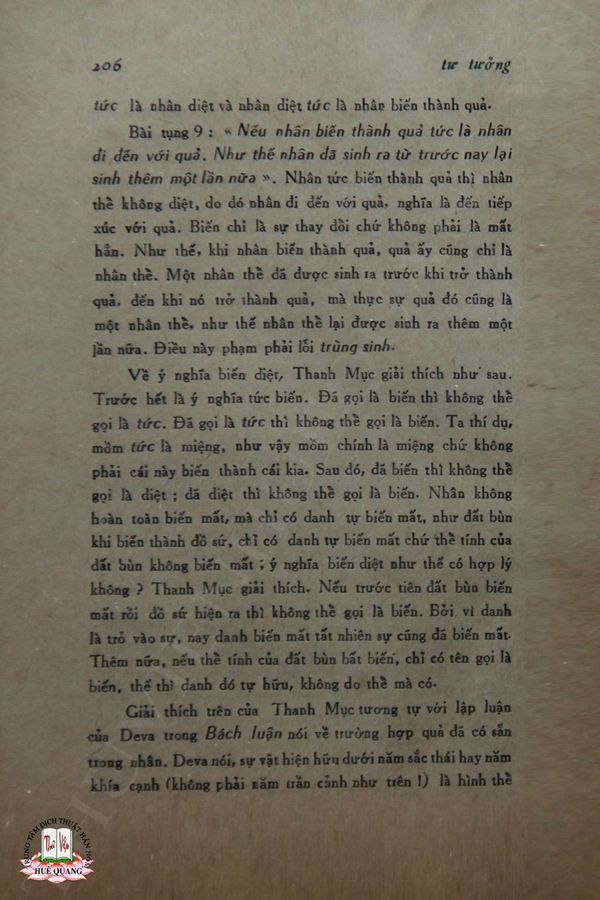 206 tư tưởng
tức là nhân diệt và nhân diệt tức là nhân biến thành quả.
Bài tụng 9 : « Nếu nhân biến thành quả tức là nhân
đi đến với quả. Như thế nhân đã sinh ra từ trước nay lại
sinh thêm một lần nữa ». Nhân tức biến thành quả thì nhân
thể không diệt, do đó nhân đi đến với quả, nghĩa là đến tiếp
xúc với quả. Biến chỉ là sự thay đổi chứ không phải là mất
hẳn. Như thế, khi nhân biến thành quả, quả ấy cũng chỉ là
nhân thể. Một nhân thể đã được sinh ra trước khi trở thành
quả, đến khi nó trở thành quả, mà thực sự quả đó cũng là
một nhân thể, như thế nhân thể lại được sinh ra thêm một
lần nữa. Điều này phạm phải lỗi trùng sinh.
Về ý nghĩa biến diệt, Thanh Mục giải thích như sau.
Trước hết là ý nghĩa tức biến. Đã gọi là biến thì không thể
gọi là tức. Đã gọi là tức thì không thể gọi là biến. Ta thí dụ,
mồm tức là miệng, như vậy mồm chính là miệng chứ không
phải cái này biến thành cái kia. Sau đó, đã biến thì không thể
gọi là diệt ; đã diệt thì không thể gọi là biến. Nhân không
hoàn toàn biến mất, mà chỉ có danh tự biến mất, như đất bùn
khi biến thành đồ sứ, chỉ có danh tự biến mất chứ thể tính của
đất bùn không biến mất ; ý nghĩa biến diệt như thế có hợp lý
không ? Thanh Mục giải thích. Nếu trước tiên đất bùn biến
mất rồi đồ sứ hiện ra thì không thể gọi là biến. Bởi vì danh
là trỏ vào sự, nay danh biến mất tất nhiên sự cũng đã biến mất.
Thêm nữa, nếu thể tính của đất bùn bất biến, chỉ có tên gọi là
biến, thế thì danh đó tự hữu, không do thể mà có.
Giải thích trên của Thanh Mục tương tự với lập luận
của Deva trong Bách luận nói về trường hợp quả đã có sẵn
trong nhân. Deva nói, sự vật hiện hữu dưới năm sắc thái hay năm
khía cạnh (không phải năm trần cảnh như trên !) là hình thể
TRUNG TÂM DỊCH THUẬT HÁN NÔM
HUỆ QUANG